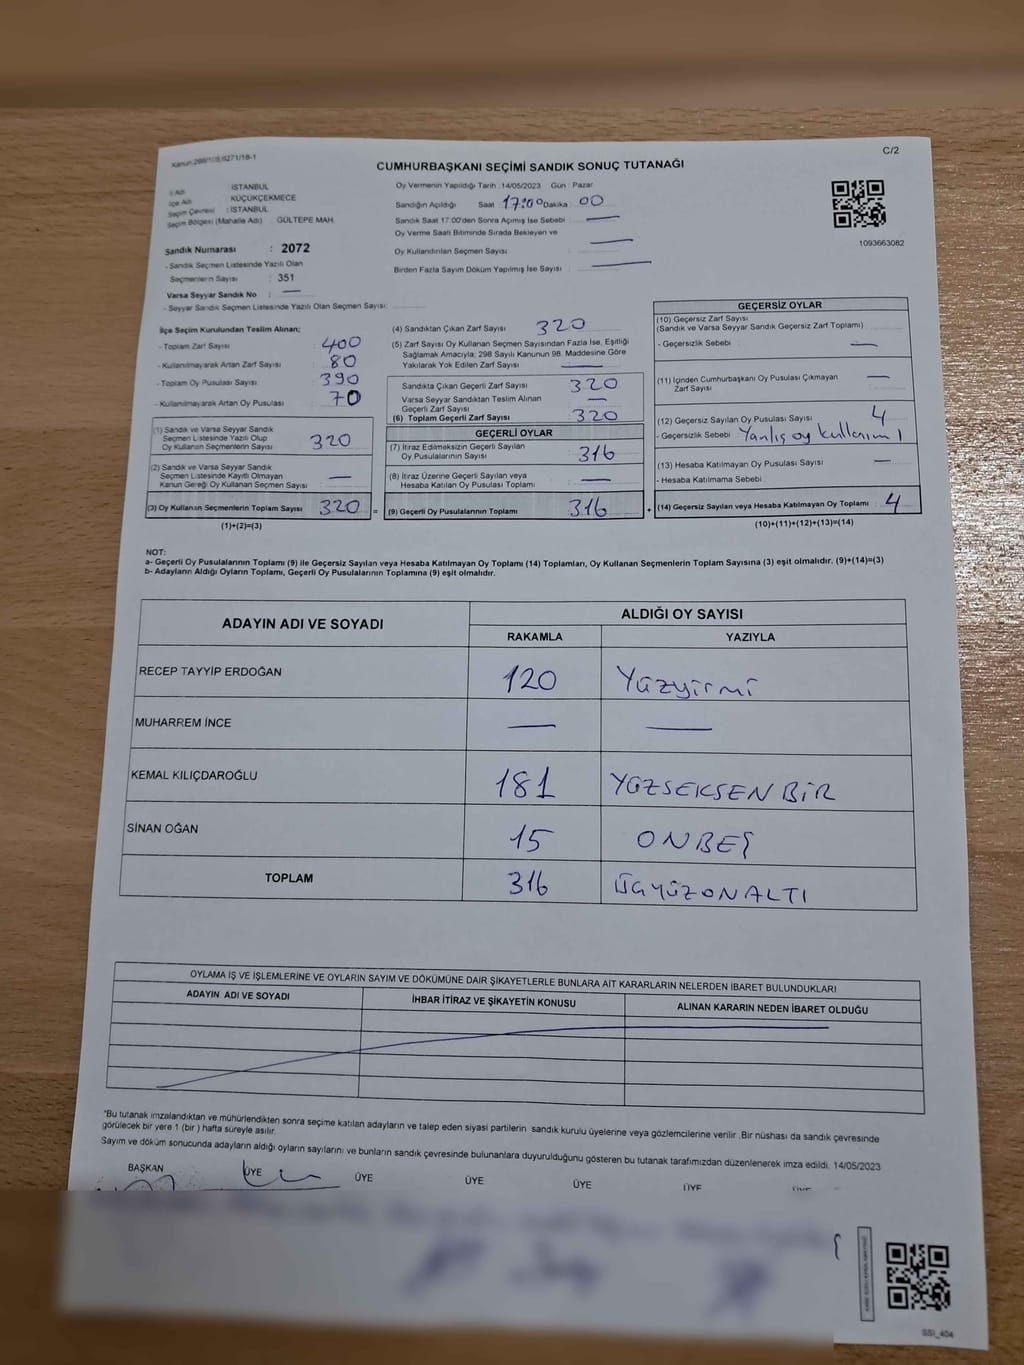 Kanun:298/108,6271/18-1
C/2
CUMHURBAŞKANI SEÇİMİ SANDIK SONUÇ TUTANAĞI
İl Adı : İSTANBUL
İlçe Adı KÜÇÜKÇEKMECE
Seçim Çevresi : İSTANBUL
Seçim Bölgesi (Mahalle Adı) GÜLTEPE MAH.
Sandık Numarası : 2072
- Sandık Seçmen Listesinde Yazılı Olan
Seçmenlerin Sayısı : 351
Varsa Seyyar Sandık No : —
- Seyyar Sandık Seçmen Listesinde Yazılı Olan Seçmen Sayısı:
Oy Vermenin Yapıldığı Tarih : 14/05/2023 Gün : Pazar
Sandığın Açıldığı Saat : 17:00 Dakika : 00
Sandık Saat 17:00'den Sonra Açımış İse Sebebi : —
Oy Verme Saati Bitiminde Sırada Bekleyen ve
Oy Kullandırılan Seçmen Sayısı : —
Birden Fazla Sayım Döküm Yapılmış İse Sayısı : —
1093663082
İlçe Seçim Kurulundan Teslim Alınan;
- Toplam Zarf Sayısı : 400
- Kullanılmayarak Artan Zarf Sayısı : 80
- Toplam Oy Pusulası Sayısı : 390
- Kullanılmayarak Artan Oy Pusulası : 70
(1) Sandık ve Varsa Seyyar Sandık
Seçmen Listesinde Yazılı Olup
Oy Kullanan Seçmenlerin Sayısı 320
(2) Sandık ve Varsa Seyyar Sandık
Seçmen Listesinde Kayıtlı Olmayan
Kanun Gereği Oy Kullanan Seçmen Sayısı —
(3) Oy Kullanan Seçmenlerin Toplam Sayısı 320 =
(1)+(2)=(3)
(4) Sandıktan Çıkan Zarf Sayısı 320
(5) Zarf Sayısı Oy Kullanan Seçmen Sayısından Fazla İse, Eşitliği
Sağlamak Amacıyla; 298 Sayılı Kanunun 98. Maddesine Göre
Yakılarak Yok Edilen Zarf Sayısı : —
Sandıkta Çıkan Geçerli Zarf Sayısı 320
Varsa Seyyar Sandıktan Teslim Alınan
Geçerli Zarf Sayısı —
(6) Toplam Geçerli Zarf Sayısı 320
GEÇERLİ OYLAR
(7) İtiraz Edilmeksizin Geçerli Sayılan
Oy Pusulalarının Sayısı 316
(8) İtiraz Üzerine Geçerli Sayılan veya
Hesaba Katılan Oy Pusulası Toplamı —
(9) Geçerli Oy Pusulalarının Toplamı 316 +
GEÇERSİZ OYLAR
(10) Geçersiz Zarf Sayısı
(Sandık ve Varsa Seyyar Sandık Geçersiz Zarf Toplamı)
- Geçersizlik Sebebi : —
(11) İçinden Cumhurbaşkanı Oy Pusulası Çıkmayan —
Zarf Sayısı
(12) Geçersiz Sayılan Oy Pusulası Sayısı 4
- Geçersizlik Sebebi Yanlış oy kullanımı
(13) Hesaba Katılmayan Oy Pusulası Sayısı —
- Hesaba Katılmama Sebebi :
(14) Geçersiz Sayılan veya Hesaba Katılmayan Oy Toplamı : 4
(10)+(11)+(12)+(13)=(14)
NOT:
a- Geçerli Oy Pusulalarının Toplamı (9) ile Geçersiz Sayılan veya Hesaba Katılmayan Oy Toplamı (14) Toplamları, Oy Kullanan Seçmenlerin Toplam Sayısına (3) eşit olmalıdır. (9)+(14)=(3)
b- Adayların Aldığı Oyların Toplamı, Geçerli Oy Pusulalarının Toplamına (9) eşit olmalıdır.
ADAYIN ADI VE SOYADI
ALDIĞI OY SAYISI
RAKAMLA YAZIYLA
RECEP TAYYİP ERDOĞAN 120 Yüzyirmi
MUHARREM İNCE — —
KEMAL KILIÇDAROĞLU 181 YÜZSEKSEN BİR
SİNAN OĞAN 15 ONBEŞ
TOPLAM 316 ÜÇYÜZONALTI
OYLAMA İŞ VE İŞLEMLERİNE VE OYLARIN SAYIM VE DÖKÜMÜNE DAİR ŞİKAYETLERLE BUNLARA AİT KARARLARIN NELERDEN İBARET BULUNDUKLARI
ADAYIN ADI VE SOYADI İHBAR İTİRAZ VE ŞİKAYETİN KONUSU ALINAN KARARIN NEDEN İBARET OLDUĞU
"Bu tutanak imzalandıktan ve mühürlendikten sonra seçime katılan adayların ve talep eden siyasi partilerin sandık kurulu üyelerine veya gözlemcilerine verilir. Bir nüshası da sandık çevresinde
görülecek bir yere 1 (bir ) hafta süreyle asılır.
Sayım ve döküm sonucunda adayların aldığı oyların sayılarını ve bunların sandık çevresinde bulunanlara duyurulduğunu gösteren bu tutanak tarafımızdan düzenlenerek imza edildi. 14/05/2023
BAŞKAN ÜYE ÜYE ÜYE ÜYE ÜYE ÜYE
SSI_404